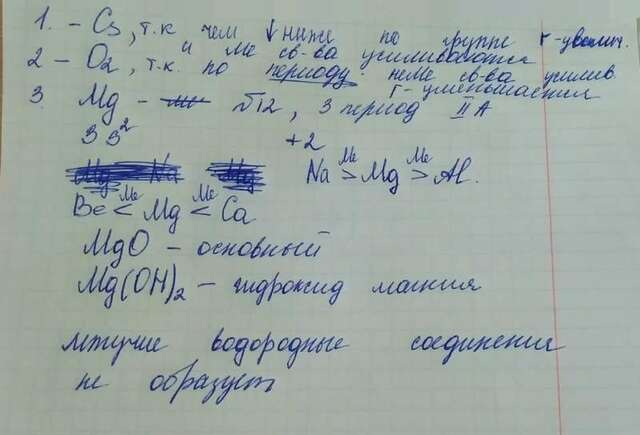 1. - Cs, т.к чем ↓ ниже по группе r-увелич.
и Ме св-ва усиливаются
2 - O₂, т.к. по периоду неМе св-ва усилив.
r-уменьшается
3. Mg - №12, 3 период II A
3 s² +2
Na >ᴹᵉ Mg >ᴹᵉ Al.
Be <ᴹᵉ Mg <ᴹᵉ Ca
MgO - основный
Mg(OH)₂ - гидроксид магния
летучие водородные соединения
не образует